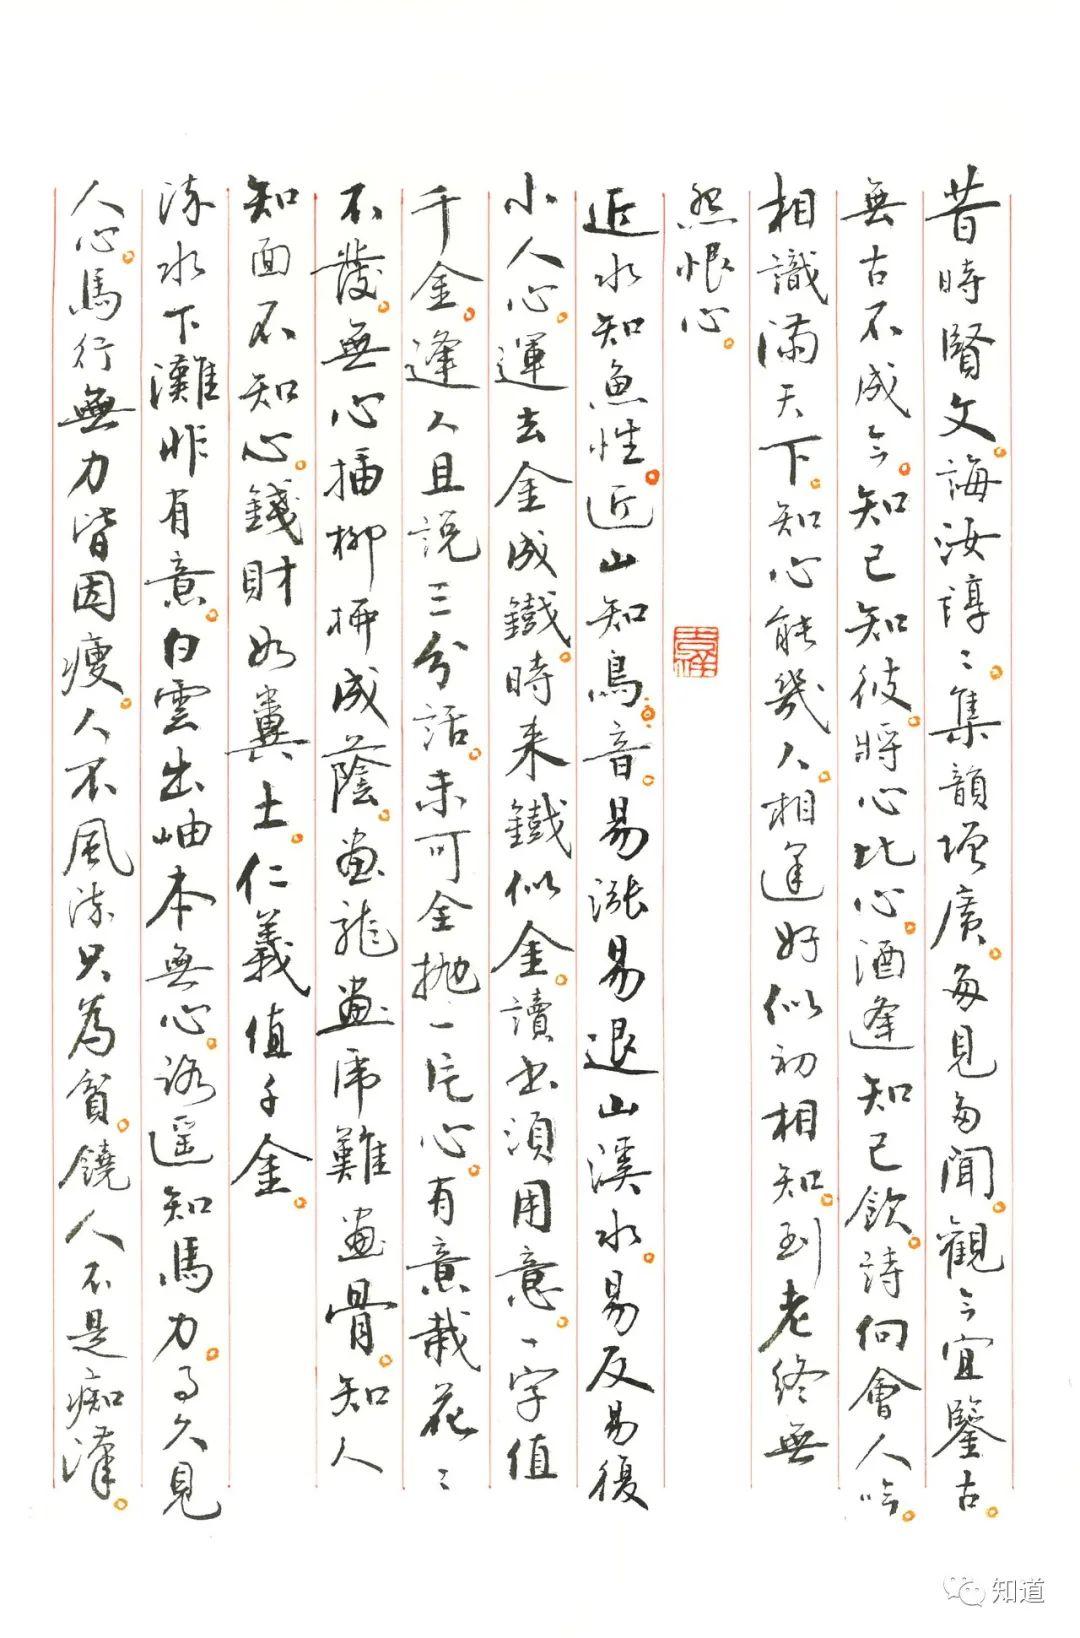 昔時賢文。誨汝諄〻。集韻增廣。多見多聞。觀今宜鑒古。
無古不成今。知己知彼。將心比心。酒逢知己飲。詩向會人吟。
相識滿天下。知心能幾人。相逢好似初相知。到老終無
怨恨心。
近水知魚性。近山知鳥音。易漲易退山溪水。易反易復
小人心。運去金成鐵。時来鐵似金。讀书須用意。一字值
千金。逢人且説三分話。未可全抛一片心。有意栽花〻
不發。無心插柳柳成蔭。畫龍畫虎難畫骨。知人
知面不知心。錢財如糞土。仁義值千金。
流水下灘非有意。白雲出岫本無心。路遥知馬力。事久見
人心。馬行無力皆因瘦。人不風流只為貧。饒人不是痴漢。
知道